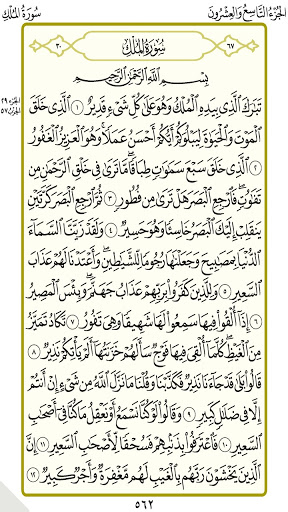 الجزء التاسع والعشرون سورة الملك
٦٧ سورة الملك ٣٠
بسم الله الرحمن الرحيم
تبرك الذي بيده الملك وهو على كل شيء قدير ١ الذي خلق
الموت والحيوة ليبلوكم أيكم أحسن عملا وهو العزيز الغفور
٢ الذي خلق سبع سموت طباقا ما ترى في خلق الرحمن من
تفوت فارجع البصر هل ترى من فطور ٣ ثم ارجع البصر كرتين
ينقلب إليك البصر خاسئا وهو حسير ٤ ولقد زينا السماء
الدنيا بمصبيح وجعلنها رجوما للشيطين وأعتدنا لهم عذاب
السعير ٥ وللذين كفروا بربهم عذاب جهنم وبئس المصير
٦ إذا ألقوا فيها سمعوا لها شهيقا وهي تفور ٧ تكاد تميز
من الغيظ كلما ألقي فيها فوج سألهم خزنتها ألم يأتكم نذير ٨
قالوا بلى قد جاءنا نذير فكذبنا وقلنا ما نزل الله من شيء إن أنتم
إلا في ضلل كبير ٩ وقالوا لو كنا نسمع أو نعقل ما كنا في أصحب
السعير ١٠ فاعترفوا بذنبهم فسحقا لأصحب السعير ١١ إن
الذين يخشون ربهم بالغيب لهم مغفرة وأجر كبير ١٢
٥٦٢